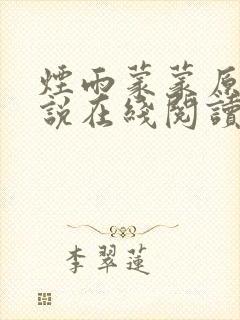 煙雨蒙蒙原
說在綫閱讀
李翠蓮